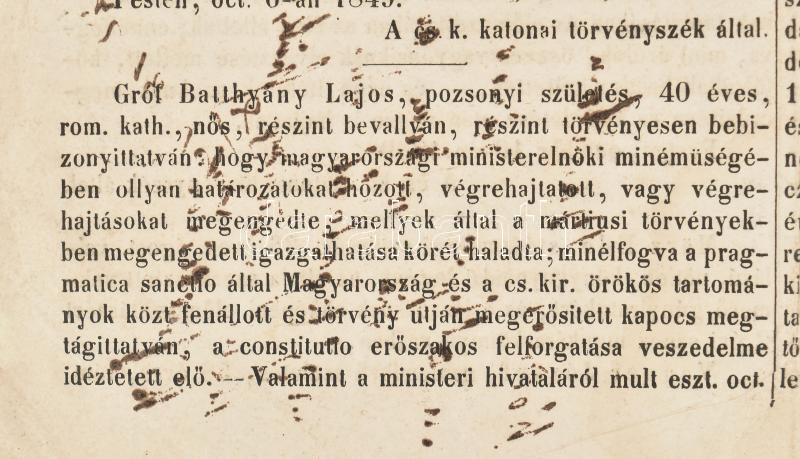 Pesten, oct. 6-án 1849.
A cs. k. katonai törvényszék által.
Gróf Batthyány Lajos, pozsonyi születés, 40 éves,
rom. kath., nős, részint bevallván, részint törvényesen bebi-
zonyittatván: hogy magyarországi ministerelnöki minémüségé-
ben ollyan határozatokat hozott, végrehajtatott, vagy végre-
hajtásokat megengedte, mellyek által a martiusi törvények-
ben megengedett igazgathatása körét haladta; minélfogva a prag-
matica sanctio által Magyarország és a cs. kir. örökös tartomá-
nyok közt fenállott és törvény utján megerősitett kapocs meg-
tágittatván, a constitutio erőszakos felforgatása veszedelme
idéztetett elő. — Valamint a ministeri hivataláról mult eszt. oct.